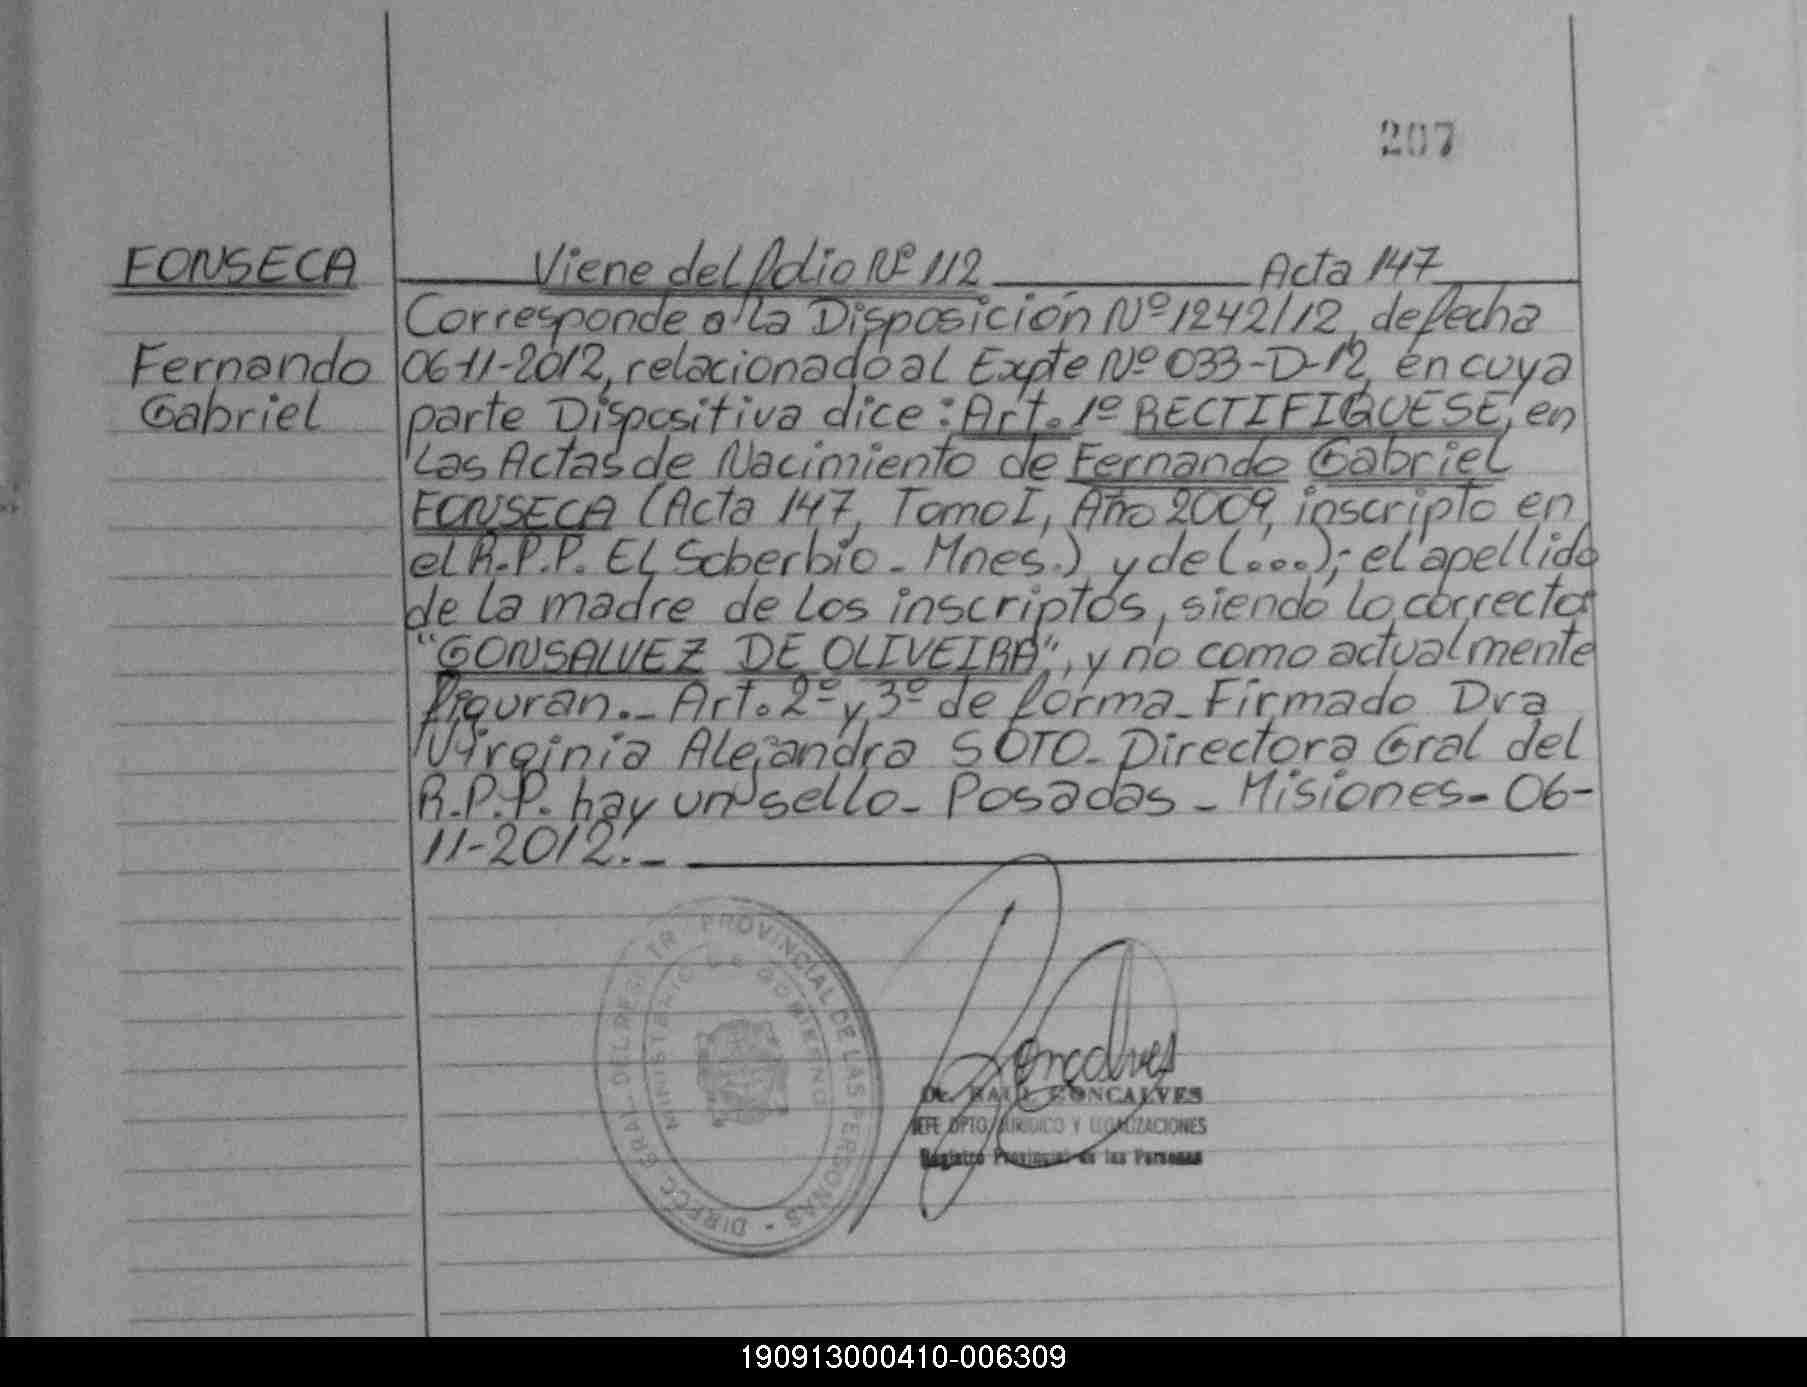 207
FONSECA
Fernando
Gabriel
Viene del folio Nº 112 Acta 147
Corresponde a la Disposición Nº 1242/12, de fecha
06-11-2012, relacionado al Expte Nº 033-D-12, en cuya
parte Dispositiva dice: Art. 1º RECTIFIQUESE, en
las Actas de Nacimiento de Fernando Gabriel
FONSECA (Acta 147, Tomo I, Año 2009, inscripto en
el R.P.P. El Soberbio - Mnes.) y de (...); el apellido
de la madre de los inscriptos, siendo lo correcto
"GONSALVEZ DE OLIVEIRA", y no como actualmente
figuran.- Art. 2º y 3º de forma - Firmado Dra
Virginia Alejandra SOTO - Directora Gral del
R.P.P. hay un sello - Posadas - Misiones - 06-
11-2012.-
DIRECC. GRAL. DEL REGISTR PROVINCIAL DE LAS PERSONAS -
MINISTERIO DE GOBIERNO
Goncalves
Dr. RAUL GONCALVES
JEFE DPTO. JURIDICO Y LEGALIZACIONES
Registro Provincial de las Personas
190913000410-006309